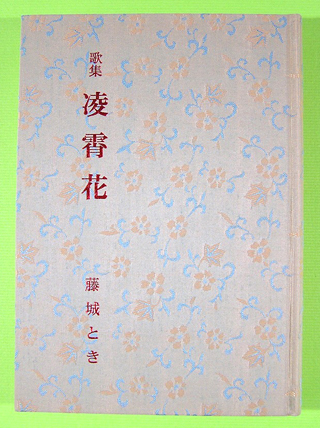 歌集
凌霄花
藤城とき